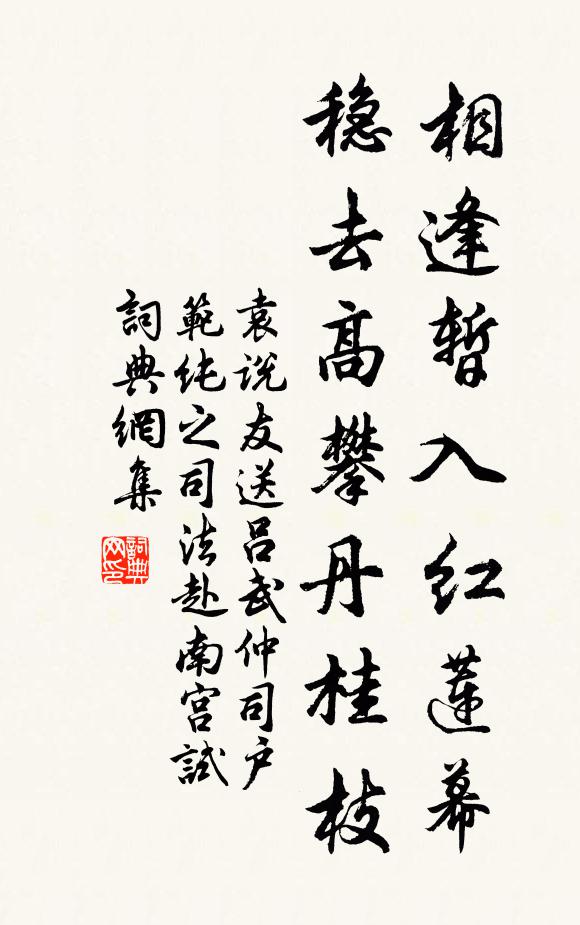 相逢暫入红蓮幕
穏去高攀丹桂枝
袁说友送吕武仲司户
範纯之司法赴南宫試
詞典網集
詞典
网印